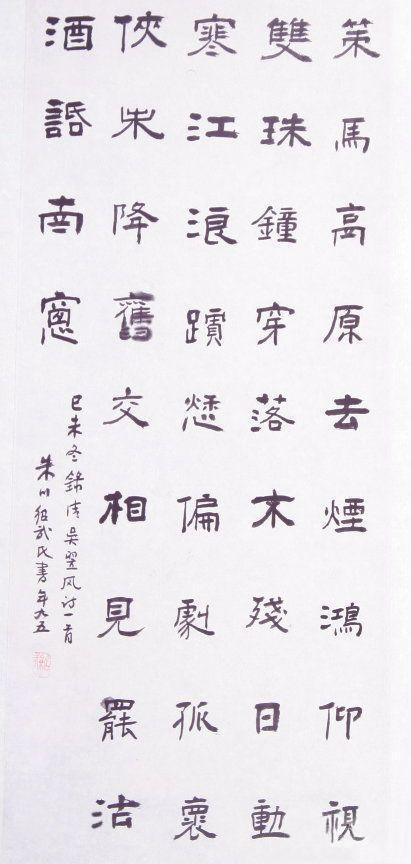 策馬高原去煙鴻仰視
雙珠鐘穿落木殘日動
寒江浪蹟愁偏劇孤褱
俠未降舊交相見罷沽
酒䛡南窻
己未冬錄清吳翌风诗一首
武氏書年九五